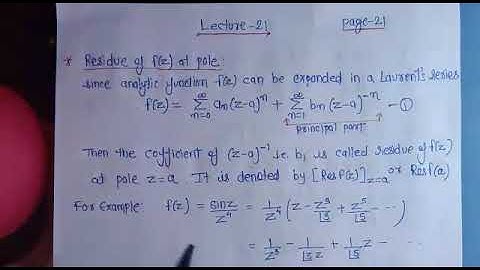 Lecture-21 Page-21
* Residue of f(z) at pole :
since analytic function f(z) can be expanded in a Laurent's series
f(z) = ∑_{n=0}^{∞} a_n (z-a)^n + ∑_{n=1}^{∞} b_n (z-a)^{-n} — ①
principal part
Then the coefficient of (z-a)^{-1} i.e. b_1 is called residue of f(z)
at pole z=a. It is denoted by [Resf(z)]_{z=a} or Resf(a)
For Example: f(z) = sinz/z^4 = 1/z^4 (z - z^3/|3 + z^5/|5 - ---)
= 1/z^3 - 1/|3 z + 1/|5 z - ---